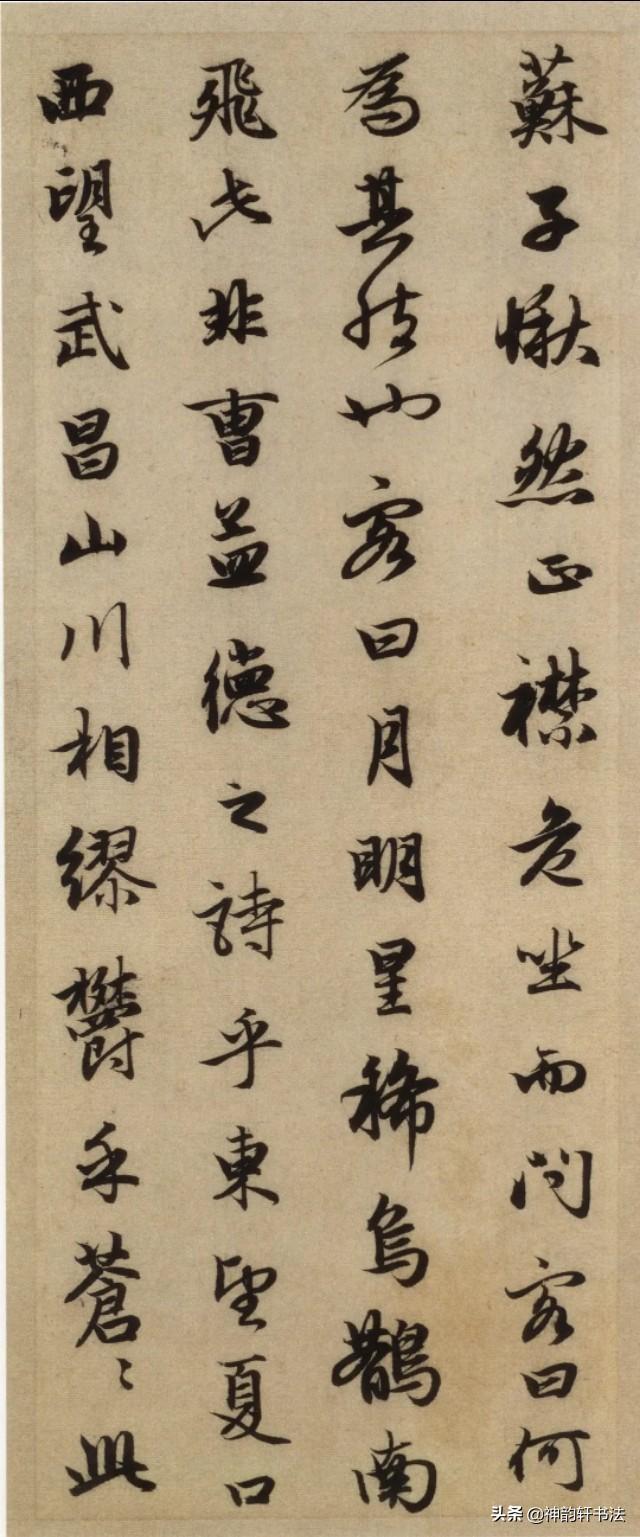 蘇子愀然正襟危坐而問客曰何
為其然也客曰月明星稀烏鵲南
飛此非曹孟德之詩乎東望夏口
西望武昌山川相繆鬱乎蒼〻此
头条 @神韵轩书法